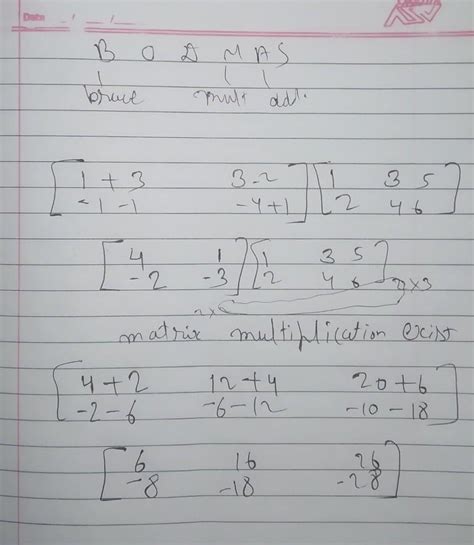 Date / /
B O D M A S
brace mult add.
[1 + 3 3-2] [1 3 5]
[-1 -1 -4+1] [2 4 6]
[4 1] [1 3 5]
[-2 -3] [2 4 6]
2× 2×3
matrix multiplication exist
[4+2 12+4 20+6]
[-2-6 -6-12 -10-18]
[6 16 26]
[-8 -18 -28]